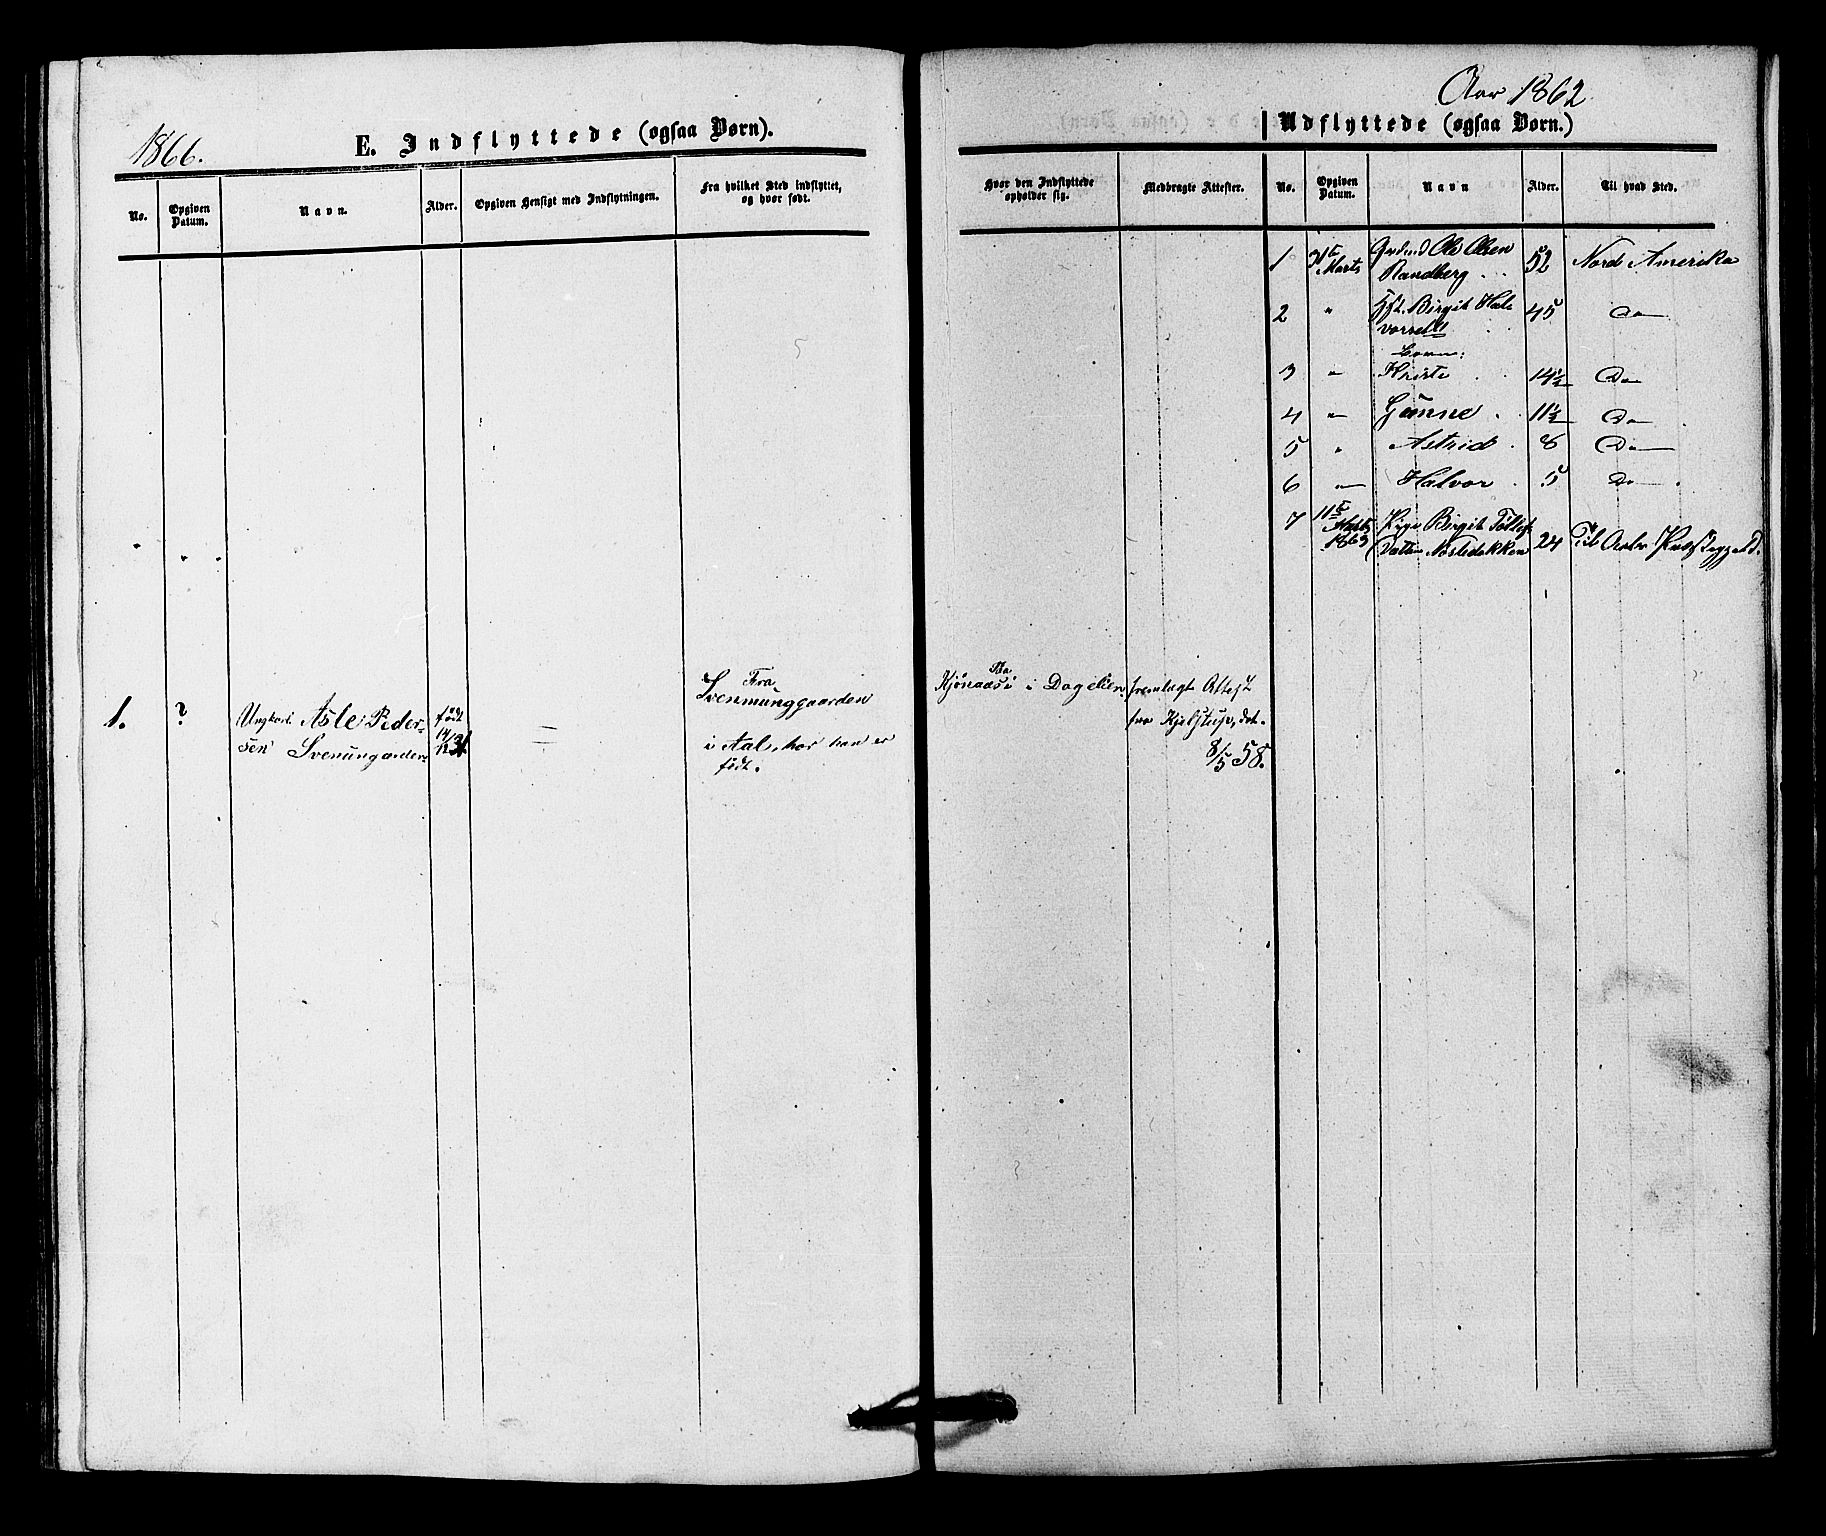 1866.
E. Indflyttede (ogsaa Børn).
No.
Opgiven Datum.
Navn.
Alder.
Opgiven Hensigt med Indflytningen.
Fra hvilket Sted indflyttet, og hvor født.
1.
?
Ungkarl Asle Peder-
sen Svenungarden
født
14/12 31.
Fra
Svenunggaarden
i Aal, hvor han er
født.
Aar 1862
Udflyttede (ogsaa Børn.)
Hvor den Indflyttede opholder sig.
Medbragte Attester.
No.
Opgiven Datum.
Navn
Alder.
Til hvad Sted.
1 Marts Ole Olsen
Randberg 52 Nord Amerika
2 " Birgit Hal-
vorsd 45 Do
Børn:
3 " 14½ Do
4 " Gunne 11½ Do
5 " Astrid 8 Do
6 " Halvor 5 Do
7 11te Marts 1863 Pige Birgit
24 Til
i Dagalien
fremlagt Attest
fra Kjelstrup, dat.
8/5 58.